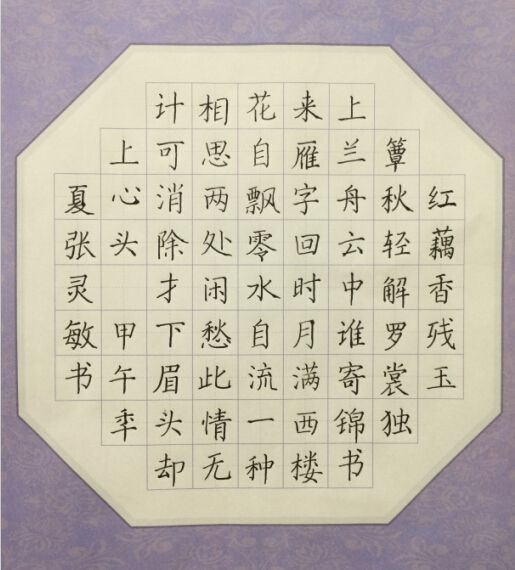 红藕香残玉
簟秋轻解罗裳独
上兰舟云中谁寄锦书
来雁字回时月满西楼
花自飘零水自流一种
相思两处闲愁此情无
计可消除才下眉头却
上心头 甲午秊
夏张灵敏书